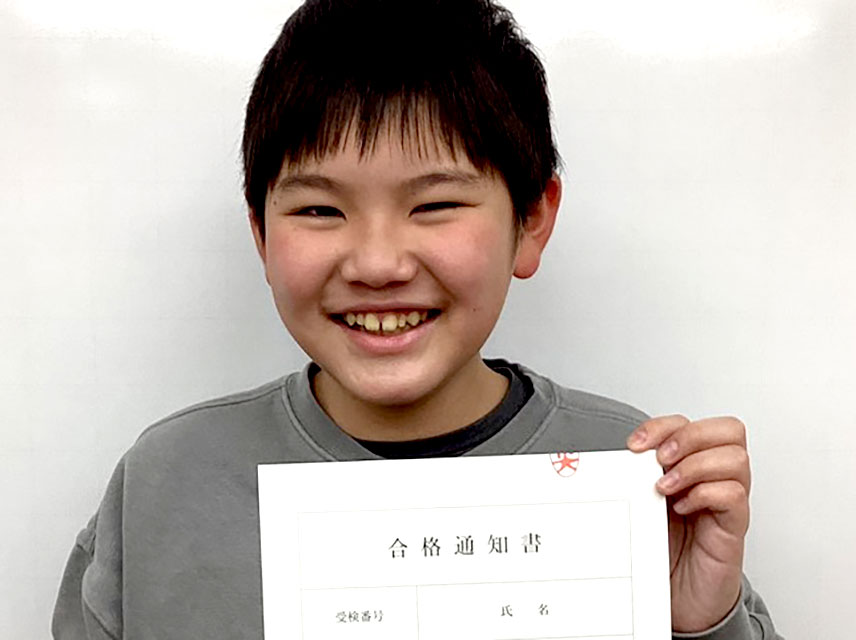 合格通知書
受検番号 氏名